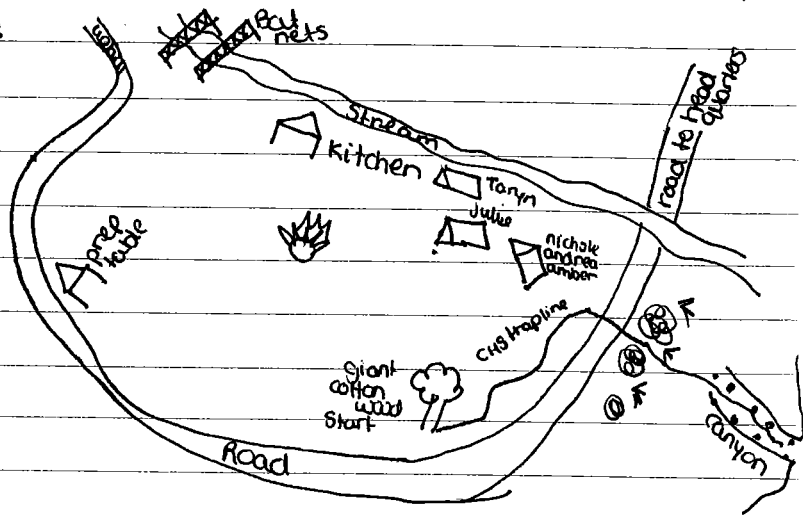 Bat
nets
road to head
quarters
Stream
Kitchen
Taryn
Julie
nichole
andrea
amber
prep
table
CHS trapline
giant
cotton
wood
Start
canyon
Road